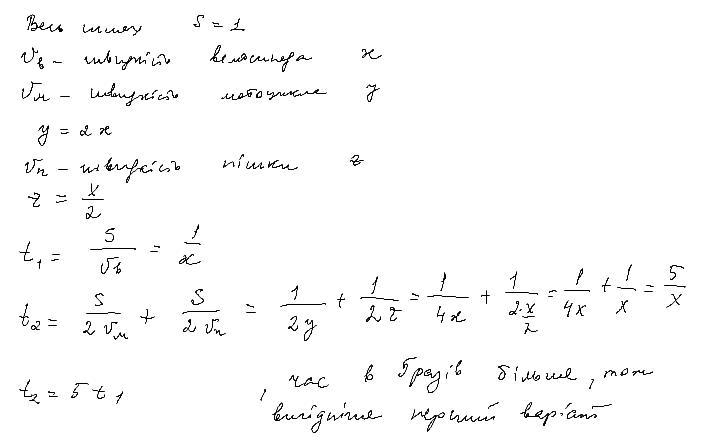 Весь шлях S = 1
Vв - швидкість велосипеда x
Vм - швидкість мотоцикла y
y = 2x
Vп - швидкість пішки z
z = x/2
t₁ = S/Vв = 1/x
t₂ = S/(2Vм) + S/(2Vп) = 1/(2y) + 1/(2z) = 1/(4x) + 1/(2·x/2) = 1/(4x) + 1/x = 5/x
t₂ = 5t₁ , час в 5 разів більше, тому
вигідніше перший варіант